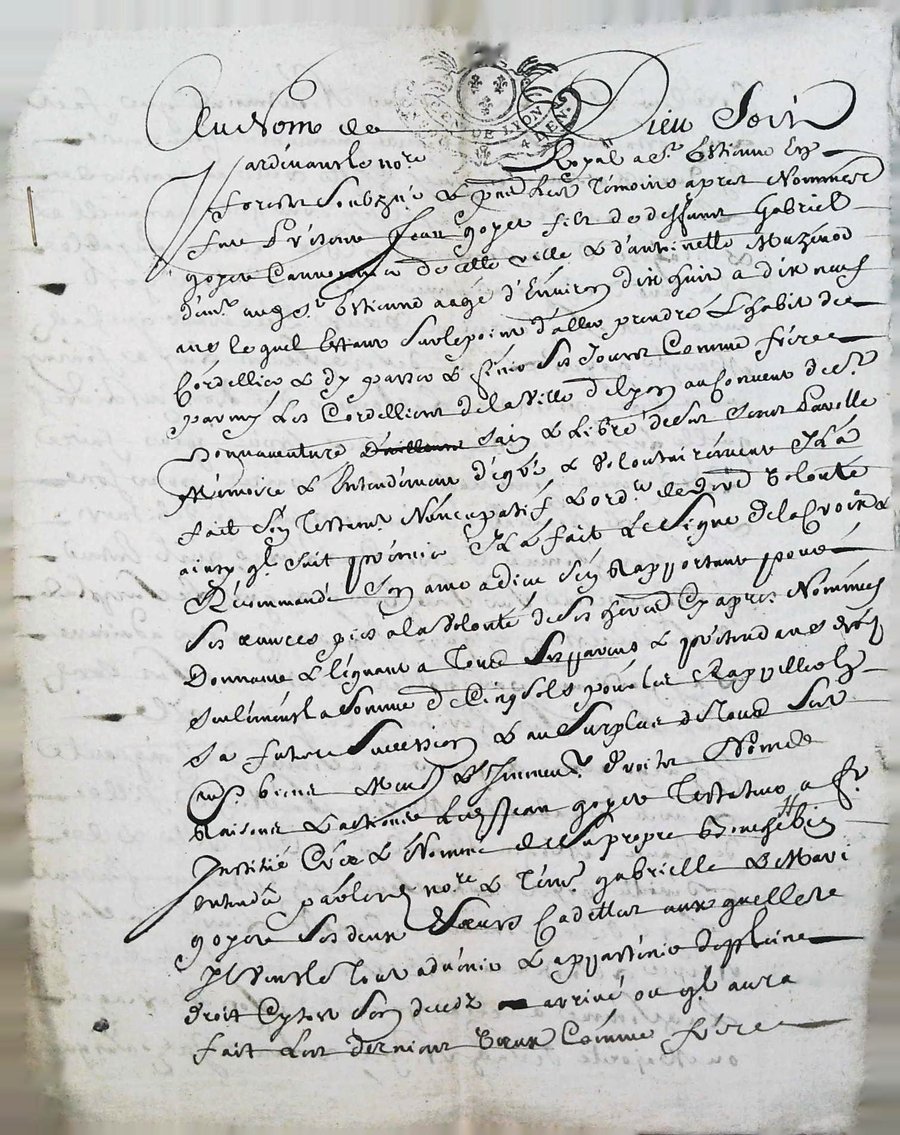 GEN DE LYON
4 DEN.
Au Nom de Dieu Soit
Pardevant le nore Royal a St Estienne En
forestz Soubzné & pnts Les Témoins apres Nommés
fut présent Jean goyet fils de deffunt Gabriel
goyet de celle ville & d'anthoinette Mazenod
audt St Estienne aagé d'Environ dix huit a dix neuf
ans lequel Estant Sur le point d'aller prendre L'habit de
Cordellier & d'y passer & finir Ses Jours Comme frère
parmy Les Cordelliers de la Ville de Lyon au Convent de St
Bonnaventure Sain & Libre de Ses Sens Parolle
Mémoire & Entendement de gré & Volontairement Il a
fait Son Testament Nuncupatif & ord.re de derre Volonté
ainsy ql Suit premier Il a fait Le Signe de la Croix &
Recommandé Son ame a dieu S'en Rapportant pour
Ses œuvres pies a la Volonté de Ses hered Cy apres Nommés
Donnant & léguant a Tous Ses parens & prétendans droit
Seulement la Somme de Cinq Sols pour Les
Sa future Succession & au Surplus de Tous Ses
biens Meub & Immeub. droits Noms
Raisons & actions Led Jean goyet Testateur a
Institué Créé & Nommé de Sa propre bouche bien
Entendu par led nore & Témt gabrielle & Mari
goyet Ses deux Sœurs Cadettes aux quelles
Il Veut le Tout advenir & appartenir de plaine
droit apres Son deced arrivé ou ql aura
fait Les derniers Vœux Comme frère